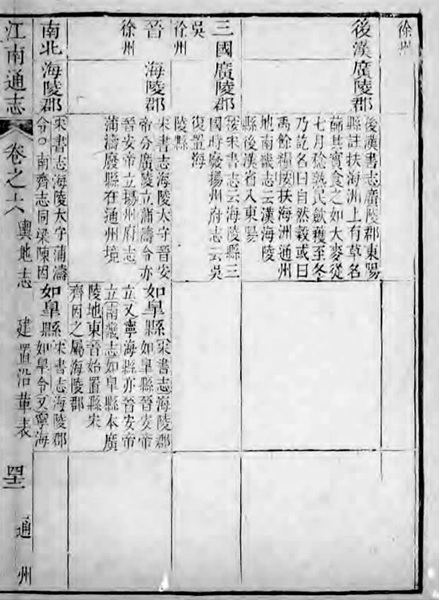 徐州
後漢 廣陵郡
後漢書志廣陵郡東陽
縣註扶海洲上有草名
蒒其實食之如大麥從
七月稔熟民斂穫至冬
乃訖名曰自然穀或曰
禹餘糧按扶海洲通州
地南畿志云漢海陵
縣後漢省入東陽
三國 廣陵郡
吳
徐州
按宋書志云海陵縣三
國時廢揚州府志云吳
復置海
陵縣
晉 海陵郡
徐州
宋書志海陵太守晉安
帝分廣陵立蒲濤令亦
晉安帝立揚州府志
蒲濤廢縣在通州境
如臯縣 宋書志海陵郡
如臯縣晉安帝
立又寧海縣亦晉安帝
立南畿志如臯縣本廣
陵地東晉始置縣宋
齊因之屬海陵郡
南北 海陵郡
宋書志海陵太守蒲濤
令〇南齊志同梁陳因
如臯縣 宋書志海陵郡
如臯令又寧海
江南通志 卷之六 輿地志 建置沿革表 四三 通州